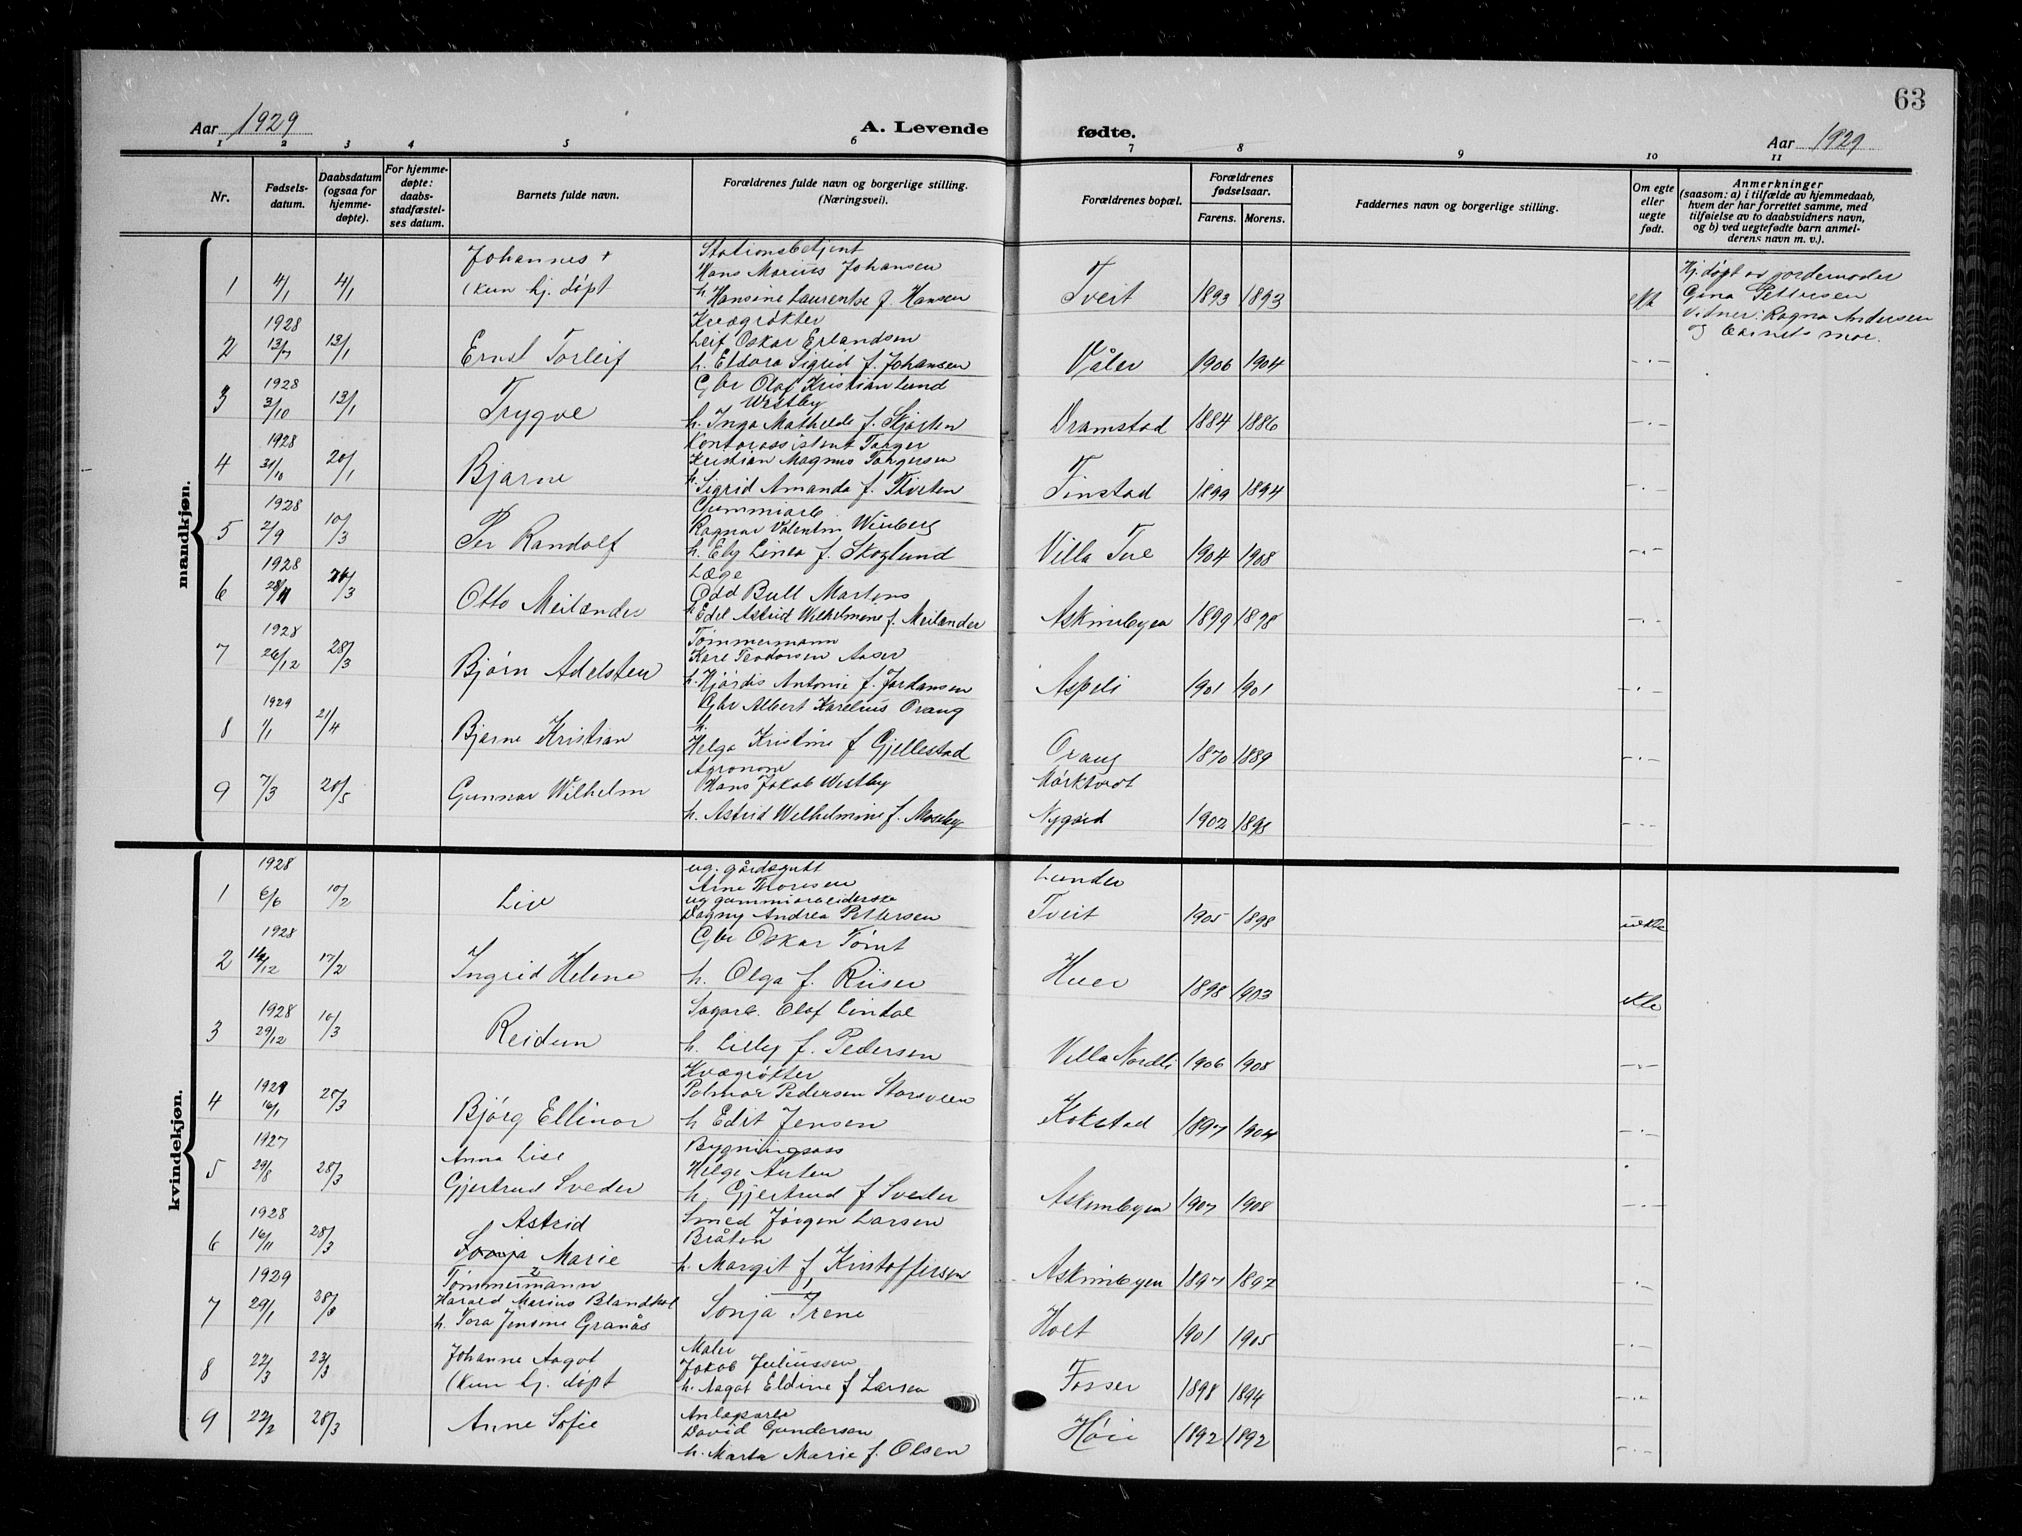 63
Aar 1929
A. Levende fødte.
Aar 1929
1 2 3 4 5 6 7 8 9 10 11
Nr.
Fødsels-
datum.
Daabsdatum
(ogsaa for
hjemme-
døpte).
For hjemme-
døpte:
daabs-
stadfæstel-
ses datum.
Barnets fulde navn.
Forældrenes fulde navn og borgerlige stilling.
(Næringsvei).
Forældrenes bopæl.
Forældrenes
fødselsaar.
Farens. Morens.
Faddernes navn og borgerlige stilling.
Om egte
eller
uegte
født.
Anmerkninger
(saasom: a) i tilfælde av hjemmedaab,
hvem der har forrettet samme, med
tilføielse av to daabsvidners navn,
og b) ved uegtefødte barn anmel-
derens navn m. v.).
mandkjøn.
1 4/1 4/1
Johannes +
(kun hj. døpt
Stationsbetjent
Hans Marius Johansen
h. Hansine Laurentse f. Hansen
Tveit 1893 1893 ekte
Hj. døpt av jordemoder
Gina Pettersen
Vitner: Ragna Andersen
og barnets mor.
1928
2 13/7 13/1
Ernst Torleif
Kvægrøkter
Leif Oskar Erlandsen
h. Eldora Sigrid f. Johansen
Våler 1906 1904 -.-
1928
3 3/10 13/1
Trygve
Gbr Olaf Kristian Lund
Westby
h. Inga Mathilde f. Skjørten
Dramstad 1884 1886 -.-
1928
4 31/10 20/1
Bjarne
Kontorassistent Torger
Kristian Magnus Torgersen
h. Sigrid Amanda f.
Finstad 1899 1894 -.-
1928
5 2/9 10/3
Per Randolf
Gummiarb
Ragnar Valentin Winberg
h. Ely Linea f. Skoglund
Villa Tue 1904 1908 -.-
1928
6 28/11 26/3
Otto Meilænder
Læge
Odd Bull Martens
h. Edel Astrid Wilhelmine f. Meilænder
Askimbyen 1899 1898 -.-
1928
7 26/12 28/3
Bjørn Adelsten
Tømmermann
Kare Teodorsen Aaser
h. Hjørdis Antonie f. Jordansen
Aspeli 1901 1901 -.-
1929
8 1/1 21/4
Bjarne Kristian
Gbr Albert Karelius Ovaug
h.
Helga Kristine f Gjellestad
Ovaug 1870 1889 -.-
9 7/3 20/5
Gunnar Wilhelm
Agronom
Hans Jakob Westby
h. Astrid Wilhelmine f. Moseby
Mørktvedt
Nygård 1902 1895 ---
kvindekjøn.
1928
1 6/6 10/2
Liv
ug. gårdsgutt
Arne Thoresen
ug gummiarbeiderske
Dagny Andrea Pettersen
Lunder
Tveit 1905 1898 uekte
1928
2 14/12 17/2
Ingrid Helene
Gbr Oskar Tømt
h. Olga f. Riiser
Huer 1898 1903 ekte
1928
3 29/12 10/3
Reidun
Sagarb. Olaf Lindal
h. Lilly f. Pedersen
Villa Nordli 1906 1908 -.-
1929
4 16/1 28/3
Bjørg Ellinor
Kvægrøkter
Palmar Pedersen Storsveen
h Edit Jensen
Kokstad 1897 1904 -.-
1927
5 29/8 28/3
Anna Lise
Gjertrud Sveder
Bygningsass
Helge Auten
h. Gjertrud f Sveder
Askimbyen 1907 1908 -.-
1928
6 16/11 28/3
Astrid
Sonja Marie
Smed Jørgen Larsen
Bråten
h. Margit f. Kristoffersen
Askimbyen 1897 1897 -.-
1929
7 29/1 28/3
2
Tømmermann
Harald Marius Blandkol
h. Tora Jensine Granås
1
Sonja Irene
Holt 1901 1905 -.-
8 22/3 23/3
Johanne Aagot
(kun hj. døpt
Maler
Jakob Juliussen
h. Aagot Eldine f Larsen
Fosser 1898 1894 -.-
9 22/2 28/3
Anne Sofie
Anlægsarb
David Gundersen
h. Marta Marie f. Olsen
Høii 1892 1892 -.-